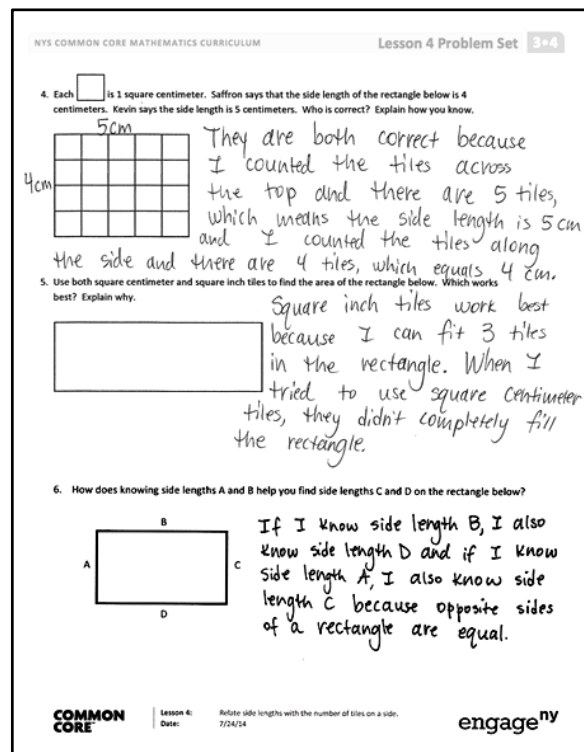 NYS COMMON CORE MATHEMATICS CURRICULUM Lesson 4 Problem Set 3•4
4. Each is 1 square centimeter. Saffron says that the side length of the rectangle below is 4
centimeters. Kevin says the side length is 5 centimeters. Who is correct? Explain how you know.
5cm
4cm
They are both correct because
I counted the tiles across
the top and there are 5 tiles,
which means the side length is 5 cm
and I counted the tiles along
the side and there are 4 tiles, which equals 4 cm.
5. Use both square centimeter and square inch tiles to find the area of the rectangle below. Which works
best? Explain why.
Square inch tiles work best
because I can fit 3 tiles
in the rectangle. When I
tried to use square centimeter
tiles, they didn't completely fill
the rectangle.
6. How does knowing side lengths A and B help you find side lengths C and D on the rectangle below?
B
A
C
D
If I know side length B, I also
know side length D and if I know
side length A, I also know side
length C because opposite sides
of a rectangle are equal.
COMMON
CORE
Lesson 4: Relate side lengths with the number of tiles on a side.
Date: 7/24/14
engage ny